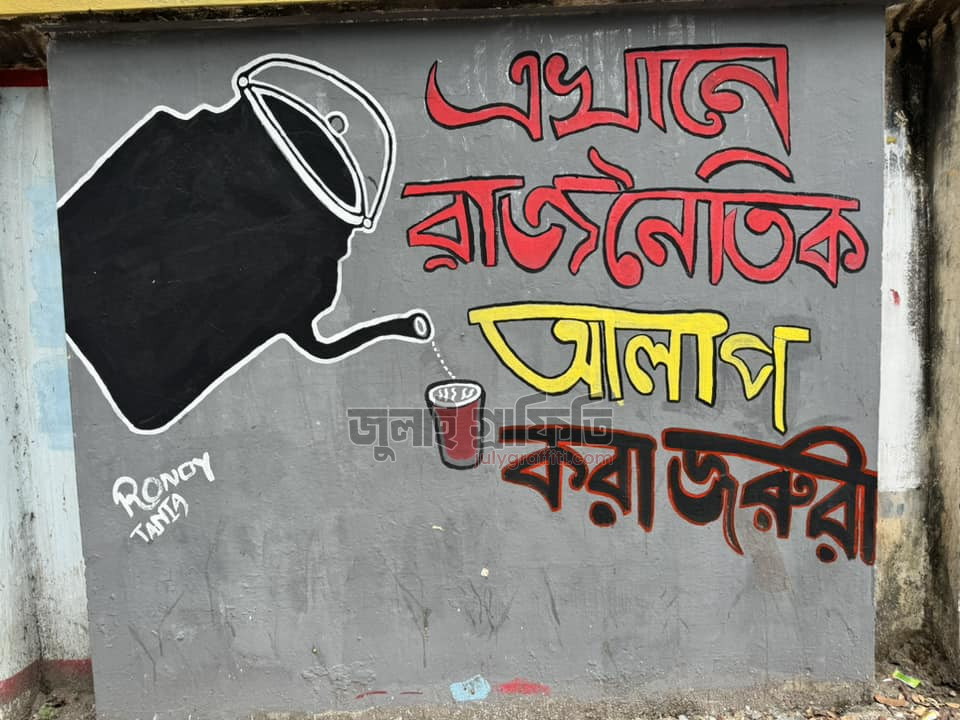 এখানে
রাজনৈতিক
আলাপ
করা জরুরী
জুলাই গ্রাফিতি
julygraffiti.com
RONOY
TANIA